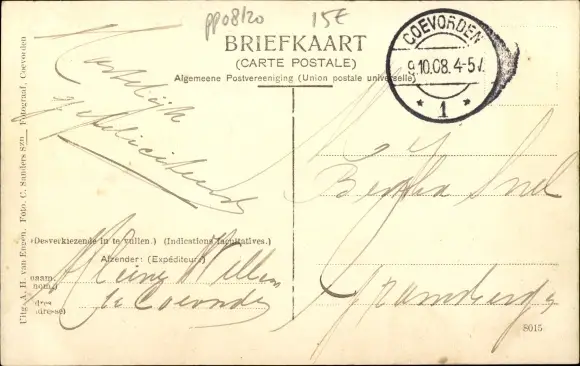 pp08/20
15€
BRIEFKAART
(CARTE POSTALE)
Algemeene Postvereeniging (Union postale universelle)
COEVORDEN
9.10.08. 4-5 V.
* 1 *
Hartelijk
gefeliciteerd
Uitg. A. H. van Engen. Foto. C. Sanders Szn Fotograaf, Coevorden
Desverkiezende in te vullen.) (Indications facultatives.)
Afzender: (Expéditeur)
te Coevorden
Snel
Gramsbergen
8015